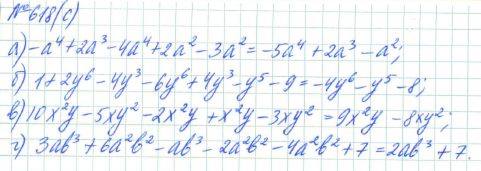 № 618(с)
а) -a⁴ + 2a³ - 4a⁴ + 2a² - 3a² = -5a⁴ + 2a³ - a²;
б) 1 + 2y⁶ - 4y³ - 6y⁶ + 4y³ - y⁵ - 9 = -4y⁶ - y⁵ - 8;
в) 10x²y - 5xy² - 2x²y + x²y - 3xy² = 9x²y - 8xy²;
г) 3ab³ + 6a²b² - ab³ - 2a²b² - 4a²b² + 7 = 2ab³ + 7.